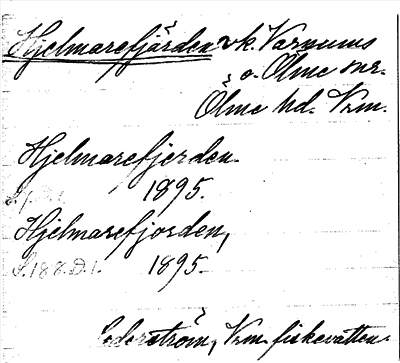 Hjelmarefjärden vk. Varnums
o. Ölme snr.
Ölme hd. Vrm.
Hjelmarefjerden.
1895.
Hjelmarefjorden,
S. 188. D. 1. 1895.
Cederström, Vrm. fiskevatten.